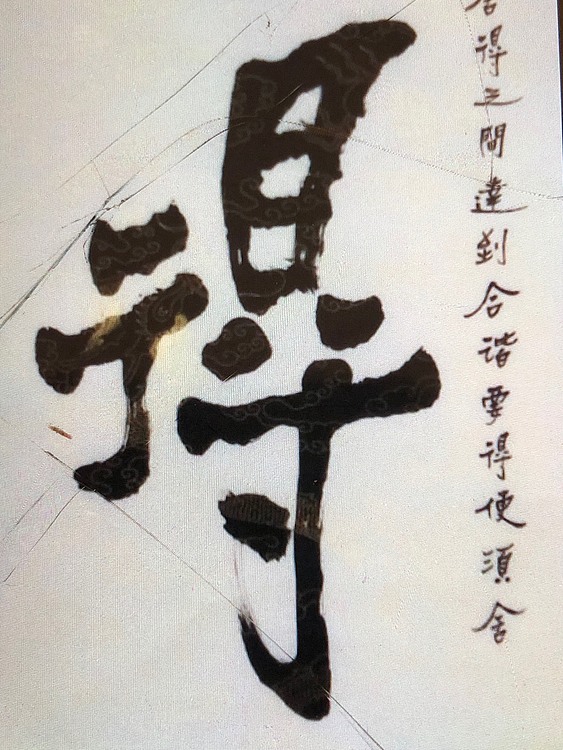 舍得之間達到合諧要得便須舍
得